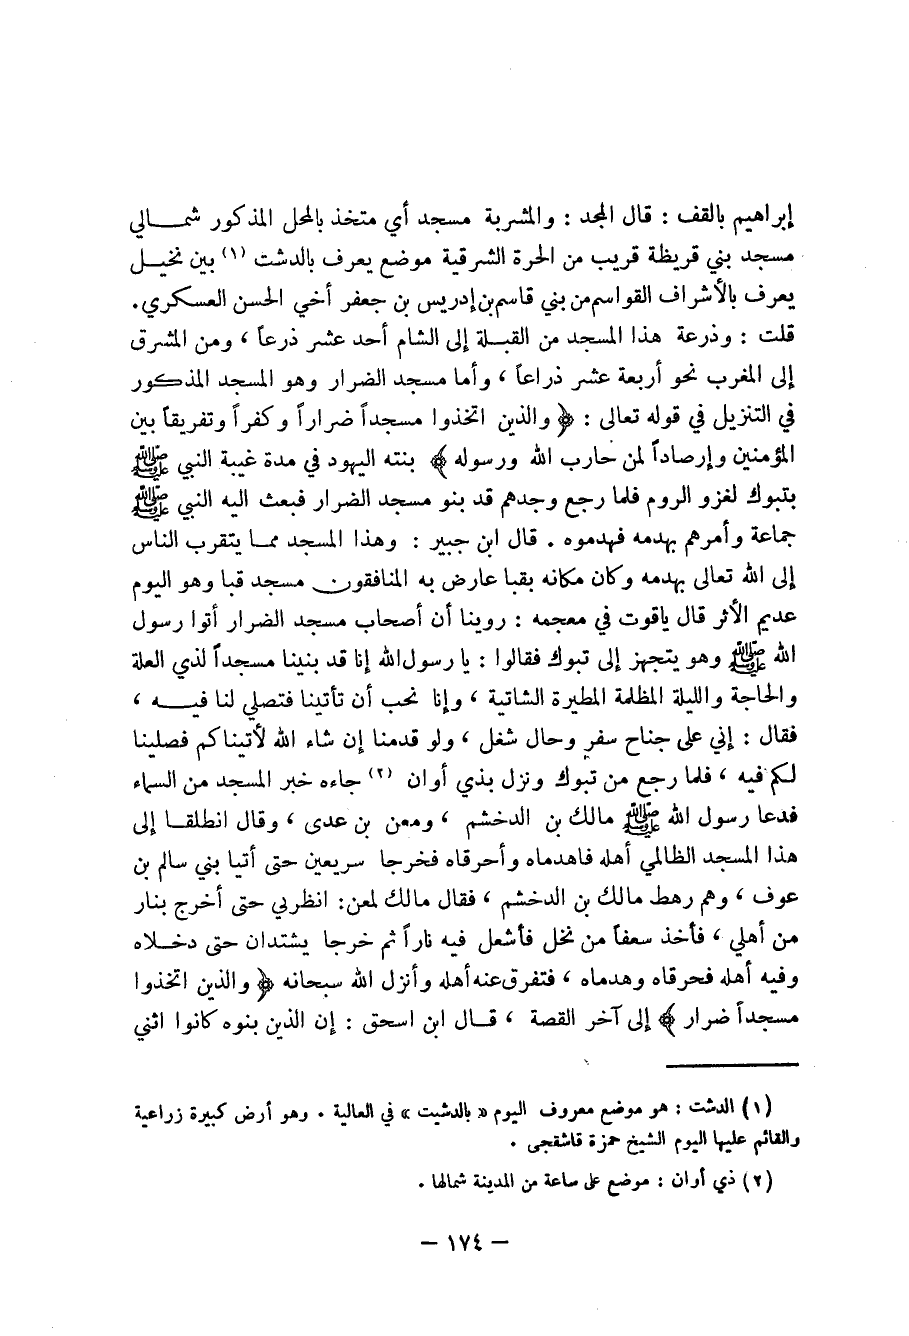 إبراهيم بالقف : قال المجد : والمشربة مسجد أي متخذ بالمحل المذكور شمـــالي
مسجد بني قريظة قريب من الحرة الشرقية موضع يعرف بالدشت (١) بين نخيــل
يعرف بالأشراف القواسم من بني قاسم بن إدريس بن جعفر أخي الحسن العسكري.
قلت : وذرعة هذا المسجد من القبـلة إلى الشام أحد عشر ذرعاً ، ومن المشرق
إلى المغرب نحو أربعة عشر ذراعاً ، وأما مسجد الضرار وهو المسجد المذكور
في التنزيل في قوله تعالى : ﴿ والذين اتخذوا مسجداً ضراراً وكفراً وتفريقاً بين
المؤمنين وإرصاداً لمن حارب الله ورسوله ﴾ بنته اليهود في مدة غيبة النبي ﷺ
بتبوك لغزو الروم فلما رجع وجدهم قد بنو مسجد الضرار فبعث اليه النبي ﷺ
جماعة وأمرهم بهدمه فهدموه . قال ابن جبير : وهذا المسجد ممـا يتقرب الناس
إلى الله تعالى بهدمه وكان مكانه بقبا عارض به المنافقون مسجد قبا وهو اليوم
عديم الأثر قال ياقوت في معجمه : روينا أن أصحاب مسجد الضرار أتوا رسول
الله ﷺ وهو يتجهز إلى تبوك فقالوا : يا رسول الله إنا قد بنينا مسجداً لذي العلة
والحاجة والليلة المظلمة المطيرة الشاتية ، وإنا نحب أن تأتينا فتصلي لنا فيـــه ،
فقال : إني على جناح سفر وحال شغل ، ولو قدمنا إن شاء الله لأتيناكم فصلينا
لكم فيه ، فلما رجع من تبوك ونزل بذي أوان (٢) جاءه خبر المسجد من السماء
فدعا رسول الله ﷺ مالك بن الدخشم ، ومعن بن عدى ، وقال انطلقـا إلى
هذا المسجد الظالمي أهله فاهدماه وأحرقاه فخرجا سريعين حتى أتيا بني سالم بن
عوف ، وهم رهط مالك بن الدخشم ، فقال مالك لمعن: انظرني حتى أخرج بنار
من أهلي ، فأخذ سعفاً من نخل فأشعل فيه ناراً ثم خرجا يشتدان حتى دخـلاه
وفيه أهله فحرقاه وهدماه ، فتفرق عنه أهله وأنزل الله سبحانه ﴿ والذين اتخذوا
مسجداً ضرار ﴾ إلى آخر القصة ، قـال ابن اسحق : إن الذين بنوه كانوا اثني
(١) الدشت : هو موضع معروف اليوم « بالدشيت » في العالية . وهو أرض كبيرة زراعية
والقائم عليها اليوم الشيخ حمزة قاشقجى .
(٢) ذي أوان : موضع على ساعة من المدينة شمالها .
— ١٧٤ —